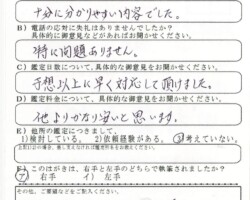 十分に分かりやすい内容でした。
B)電話の応対に失礼はありませんでしたか?
具体的に御意見などがあればお聞かせください。
特に問題ありません。
C)鑑定日数について、具体的な御意見をお聞かせください。
予想以上に早く対応して頂けました。
D)鑑定料金について、具体的な御意見をお聞かせください。
他よりかなり安いと思います。
E)他所の鑑定につきまして。
1)検討している。 2)依頼経験がある。 3)考えていない。
F)このはがきは、右手と左手のどちらで執筆されましたか?
ア 右手 イ 左手
その他、ご要望などをご記入ください。